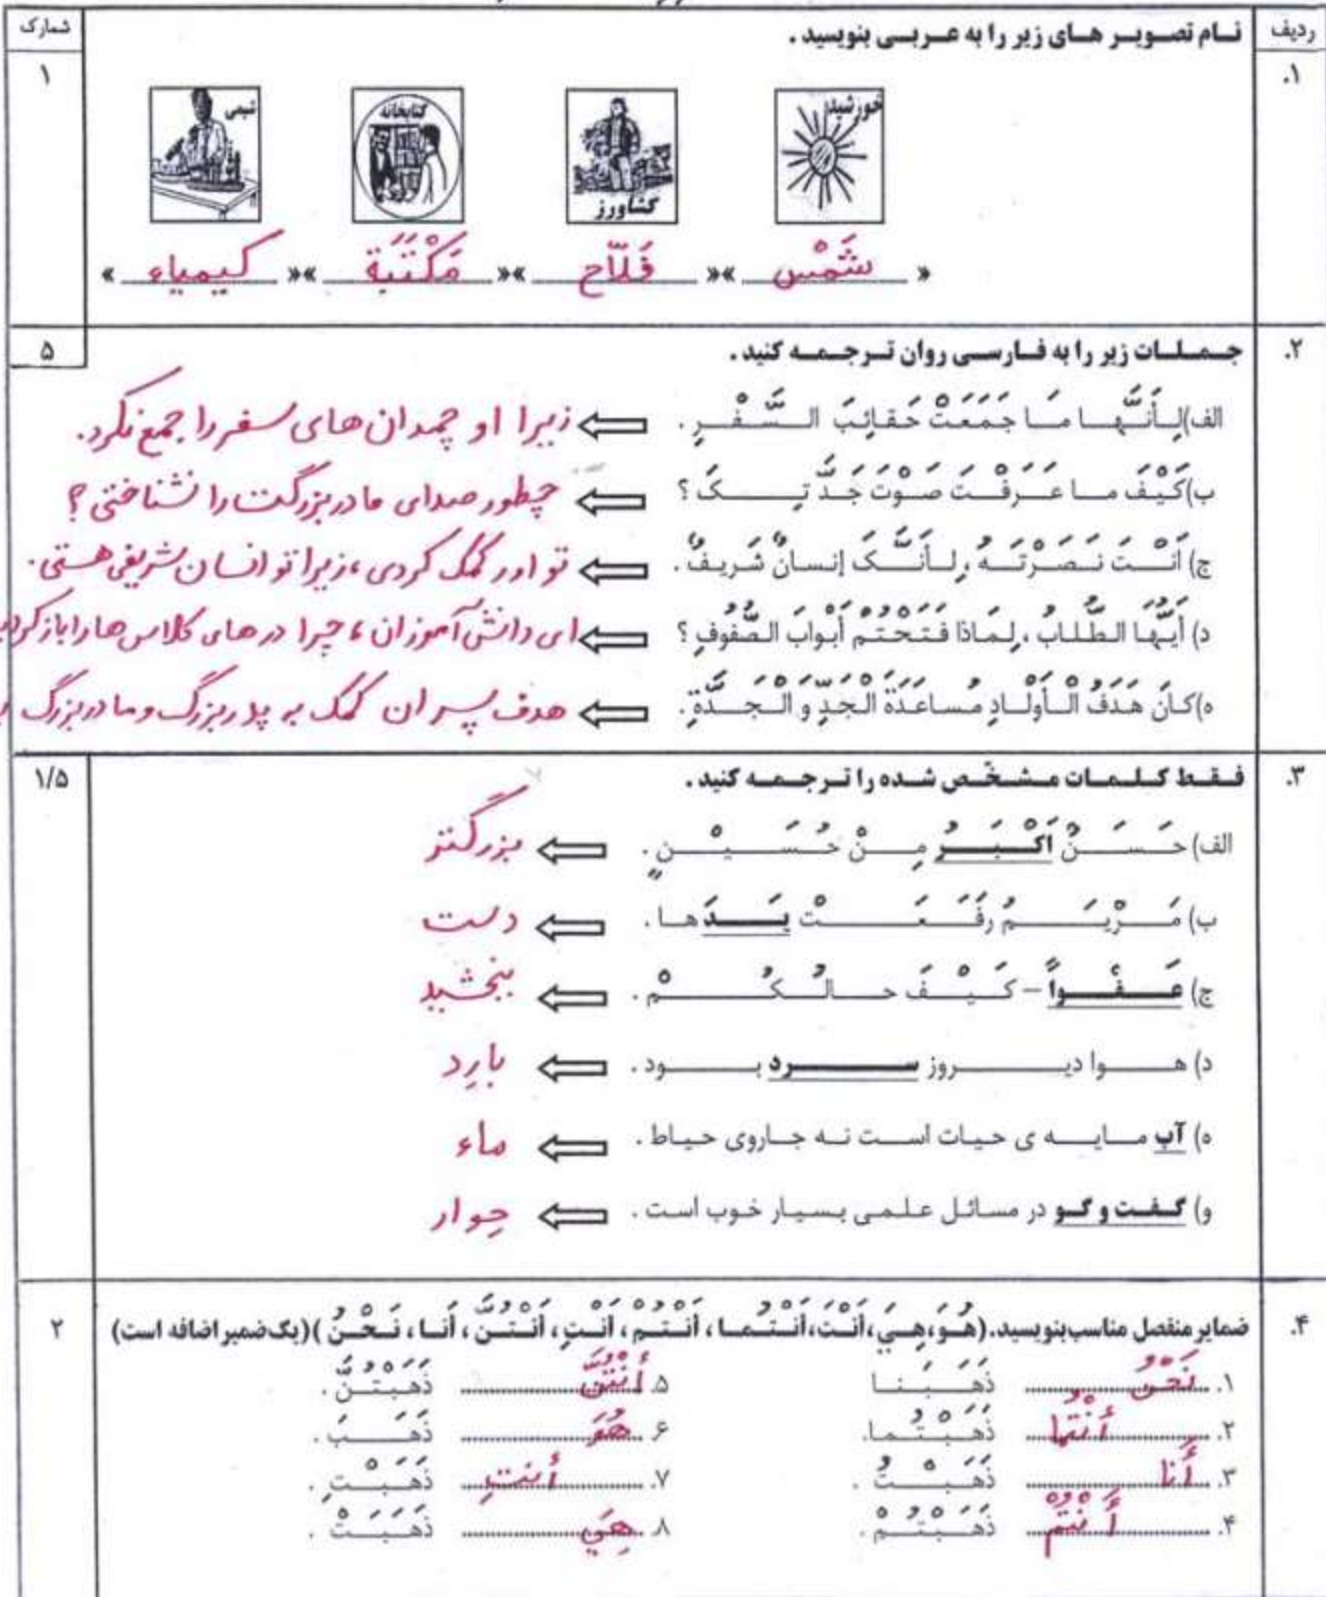 ردیف
نام تصویر های زیر را به عربی بنویسید .
شمارک
۱.
۱
خورشید
کشاورز
کتابخانه
شیمی
« شَمْس » « فَلّاح » « مَكْتَبَة » « كيمياء »
۲.
جملات زیر را به فارسی روان ترجمه کنید .
۵
الف)لِأَنَّها ما جَمَعَتْ حَقائِبَ السَّفْرِ . زیرا او چمدان های سفر را جمع نکرد.
ب)كَيْفَ ما عَرَفْتَ صَوْتَ جَدَّتِكَ ؟ چطور صدای مادربزرگت را نشناختی ؟
ج) أَنْتَ نَصَرْتَهُ لِأَنَّكَ إنسانٌ شَريفٌ . تو اور کمک کردی ، زیرا تو انسان شریفی هستی .
د) أَيُّهَا الطُّلابُ ، لِماذا فَتَحْتُمْ أَبْوابَ الصُّفُوفِ ؟ ای دانش آموزان ، چرا در های کلاس ها را باز کردید
ه)كانَ هَدَفُ الْأَوْلادِ مُساعَدَةَ الْجَدِّ و الْجَدَّةِ. هدف پسران کمک به پدربزرگ و مادربزرگ
۳.
فقط کلمات مشخّص شده را ترجمه کنید .
۱/۵
الف) حَسَنٌ أَكْبَرُ مِنْ حُسَيْنٍ . بزرگتر
ب) مَرْيَمُ رَفَعَتْ يَدَها . دست
ج) عَفْواً – كَيْفَ حالُكُمْ . ببخشید
د) هوا دیروز سرد بود . بارِد
ه) آب مایه ی حیات است نه جاروی حیاط . ماء
و) گفت و گو در مسائل علمی بسیار خوب است . حِوار
۴.
ضمایر منفصل مناسب بنویسید. (هُوَ، هِيَ، أَنْتَ، أَنْتُما، أَنْتُمْ، أَنْتِ، أَنْتُنَّ، أَنا، نَحْنُ )(یک ضمیر اضافه است)
۲
۱. نَحْنُ ذَهَبْنا
۲. أَنْتُما ذَهَبْتُما.
۳. أَنا ذَهَبْتُ .
۴. أَنْتُمْ ذَهَبْتُمْ .
۵. أَنْتُنَّ ذَهَبْتُنَّ .
۶. هُوَ ذَهَبَ .
۷. أَنتِ ذَهَبْتِ .
۸. هِيَ ذَهَبَتْ .